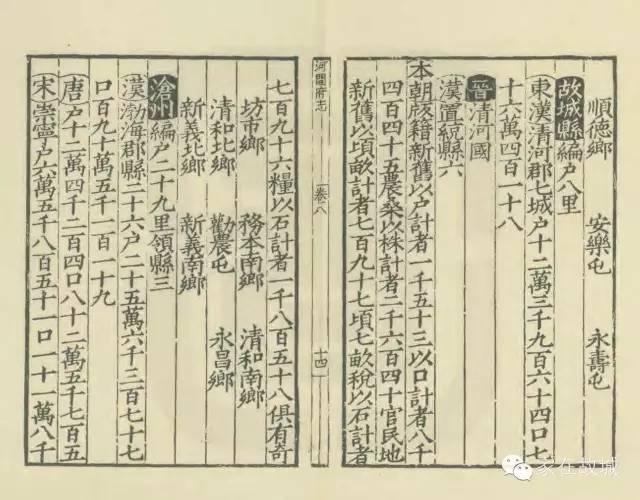 順德鄉 安樂屯 永壽屯
故城縣編戶八里
東漢清河郡七城戶十二萬三千九百六十四口七
十六萬四百一十八
晉清河國
漢置綂縣六
本朝版籍新舊以戶計者一千五十三以口計者八千
四百四十五農桑以株計者二千六百四十官民地
新舊以頃畝計者七百九十七頃七畝稅以石計者
河間府志
卷八
十四
七百九十六糧以石計者一千八百五十八俱有奇
坊市鄉 務本南鄉 清和南鄉
清和北鄉 勸農屯 永昌鄉
新義北鄉 新義南鄉
滄州編戶二十九里領縣三
漢渤海郡縣二十六戶二十五萬六千三百七十七
口九十萬五千一百一十九
唐戶十二萬四千二百四口八十二萬五千七百五
宋崇寧戶六萬五千八百五十一口一十一萬八千
家在故城